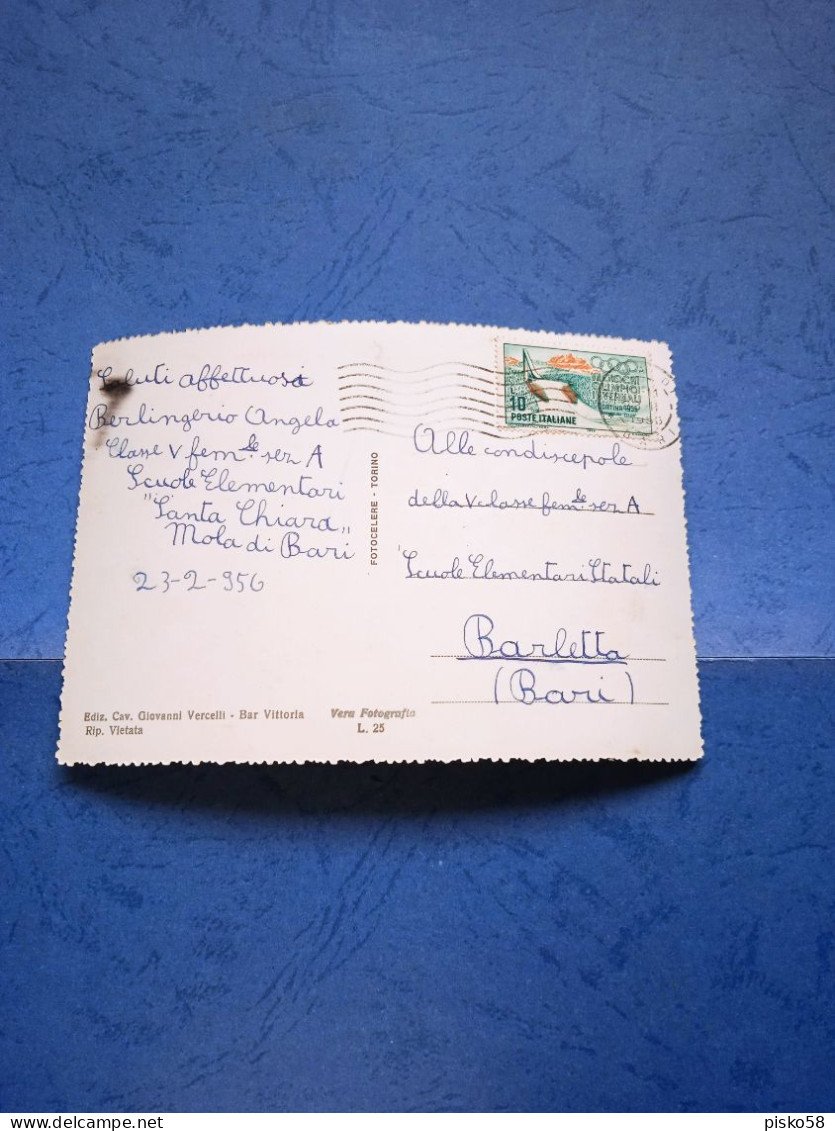 Saluti affettuosi
Berlingerio Angela
Classe V fem.le sez A
Scuole Elementari
"Santa Chiara"
Mola di Bari
23-2-956
FOTOCELERE - TORINO
10
POSTE ITALIANE
GIOCHI
INVERNALI
1956
Alle condiscepole
della V classe fem.le sez A
Scuole Elementari Statali
Barletta
(Bari)
Ediz. Cav. Giovanni Vercelli - Bar Vittoria
Rip. Vietata
Vera Fotografia
L. 25
pisko58